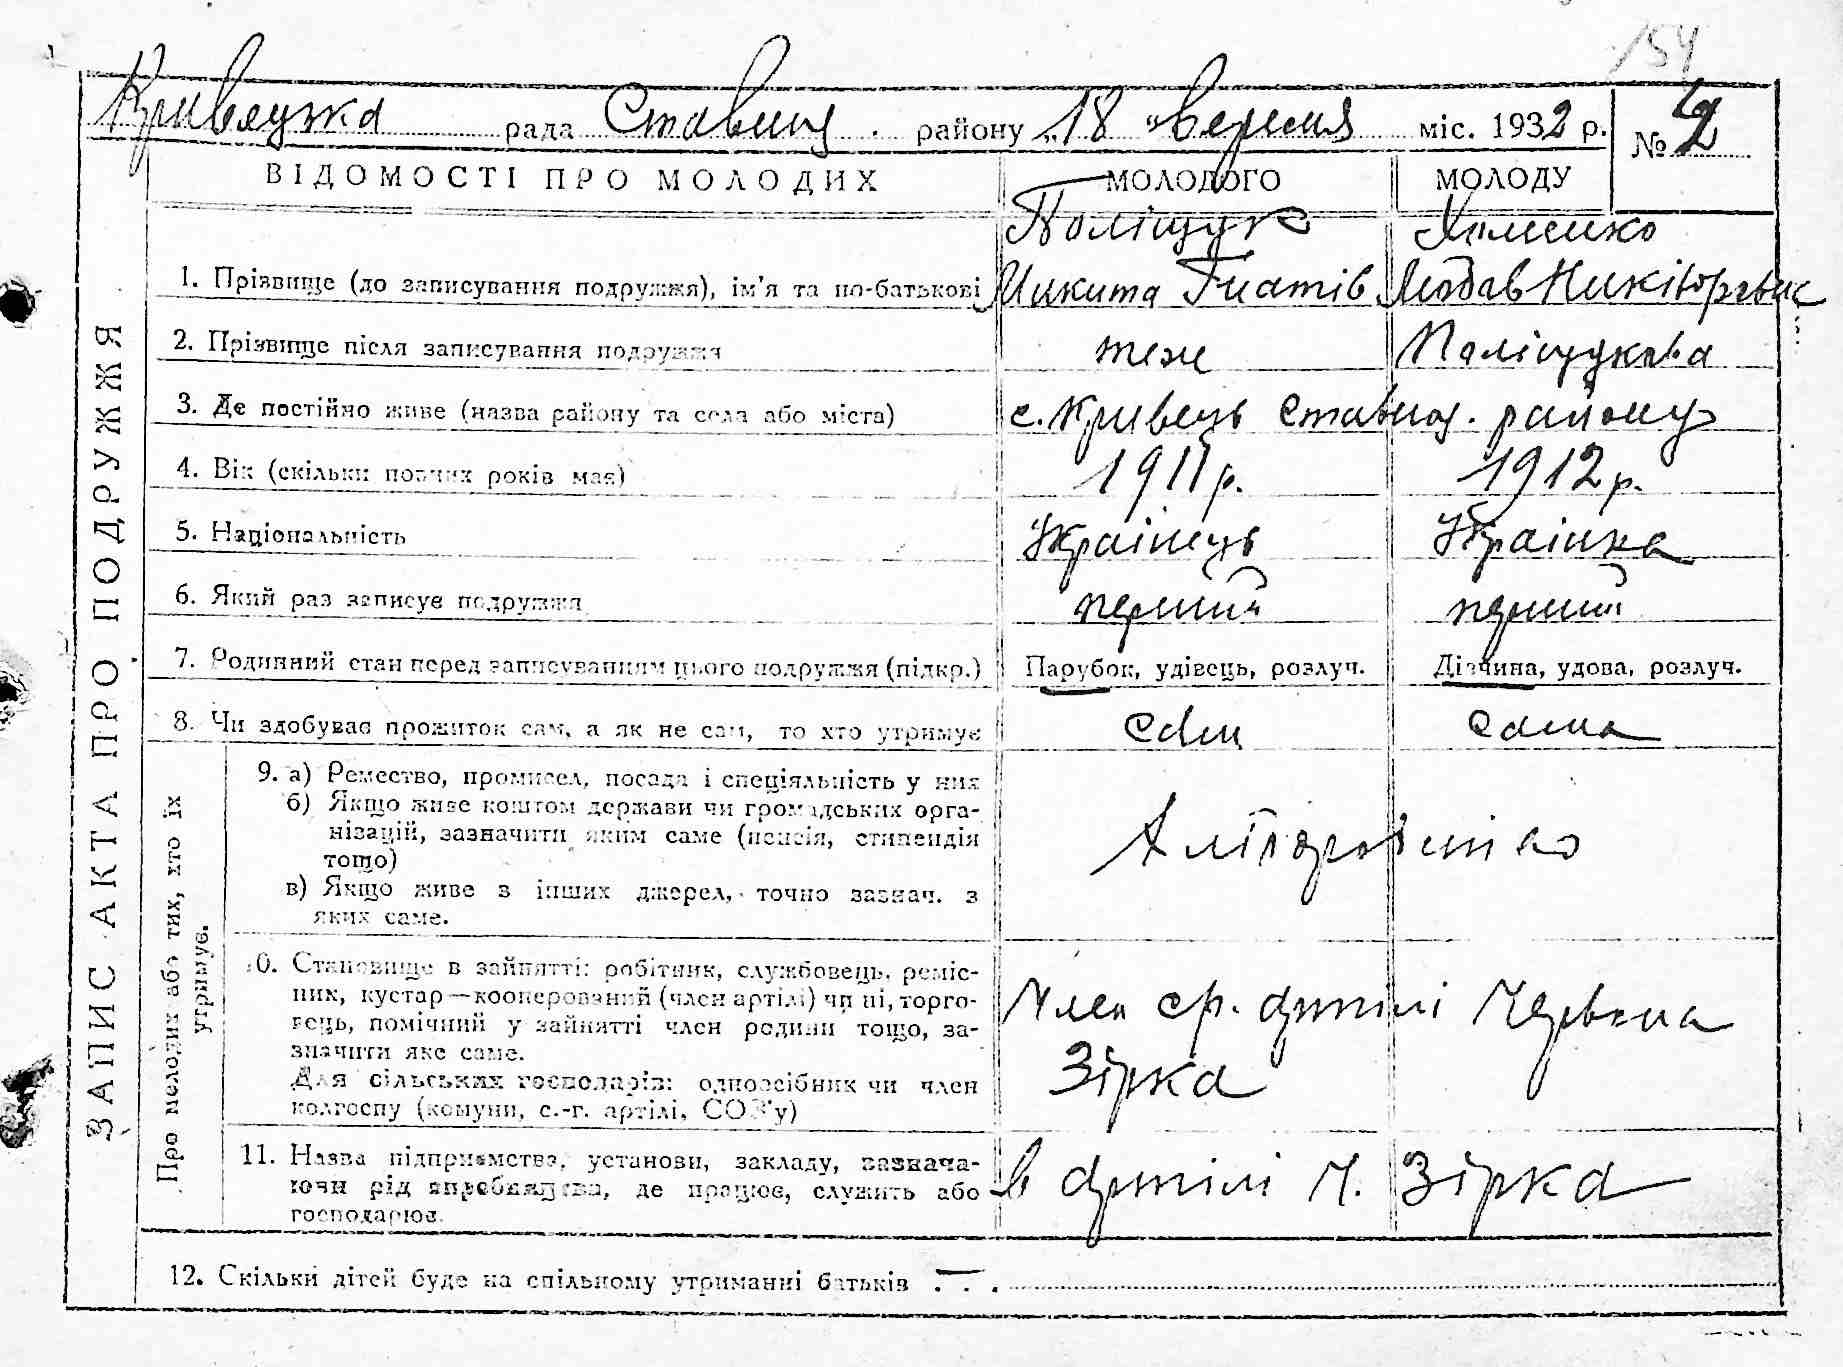 154
Кривецька рада Ставищ. району „18" вересня міс. 1932 р. № 2
ВІДОМОСТІ ПРО МОЛОДИХ МОЛОДОГО МОЛОДУ
ЗАПИС АКТА ПРО ПОДРУЖЖЯ
Поліщук Хоменко
1. Прізвище (до записування подружжя), ім'я та по-батькові Микита Гнатів
2. Прізвище після записування подружжя теж Поліщукова
3. Де постійно живе (назва району та села або міста) с. Кривець Ставищ. району
4. Вік (скільки повних років має) 1911 р. 1912 р.
5. Національність Українець Українка
6. Який раз записує подружжя перший перший
7. Родинний стан перед записуванням цього подружжя (підкр.) Парубок, удівець, розлуч. Дівчина, удова, розлуч.
8. Чи здобуває прожиток сам, а як не сам, то хто утримує сам сама
Про молодих або тих, хто їх
утримує.
9. а) Ремество, промисел, посада і спеціяльність у них
б) Якщо живе коштом держави чи громадських орга-
нізацій, зазначити яким саме (пенсія, стипендія
тощо)
в) Якщо живе з інших джерел, точно зазнач. з
яких саме.
10. Становище в зайнятті: робітник, службовець, реміс-
ник, кустар—кооперований (член артілі) чи ні, торго-
вець, помічний у зайнятті член родини тощо, за-
значити яке саме.
Для сільських господарів: одноосібник чи член
колгоспу (комуни, с.-г. артілі, СОЗ'у)
Член ср. артілі Червона
Зірка
11. Назва підприємства, установи, закладу, зазнача-
ючи рід виробництва, де працює, служить або
господарює.
в артілі Ч. Зірка
12. Скільки дітей буде на спільному утриманні батьків —